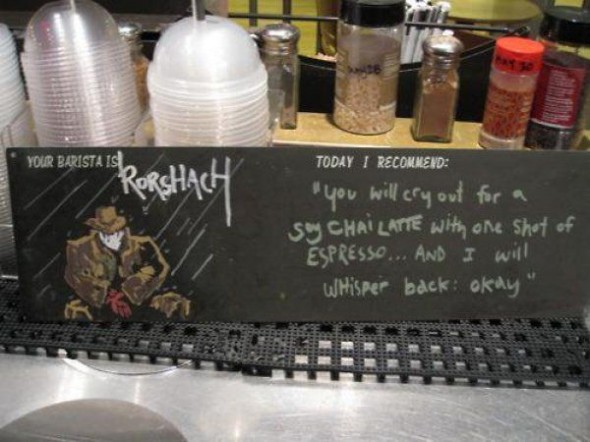 YOUR BARISTA IS
RORSHACH
TODAY I RECOMMEND:
"you will cry out for a
soy CHAI LATTE with one shot of
ESPRESSO... AND I will
WHISPER back: okay"